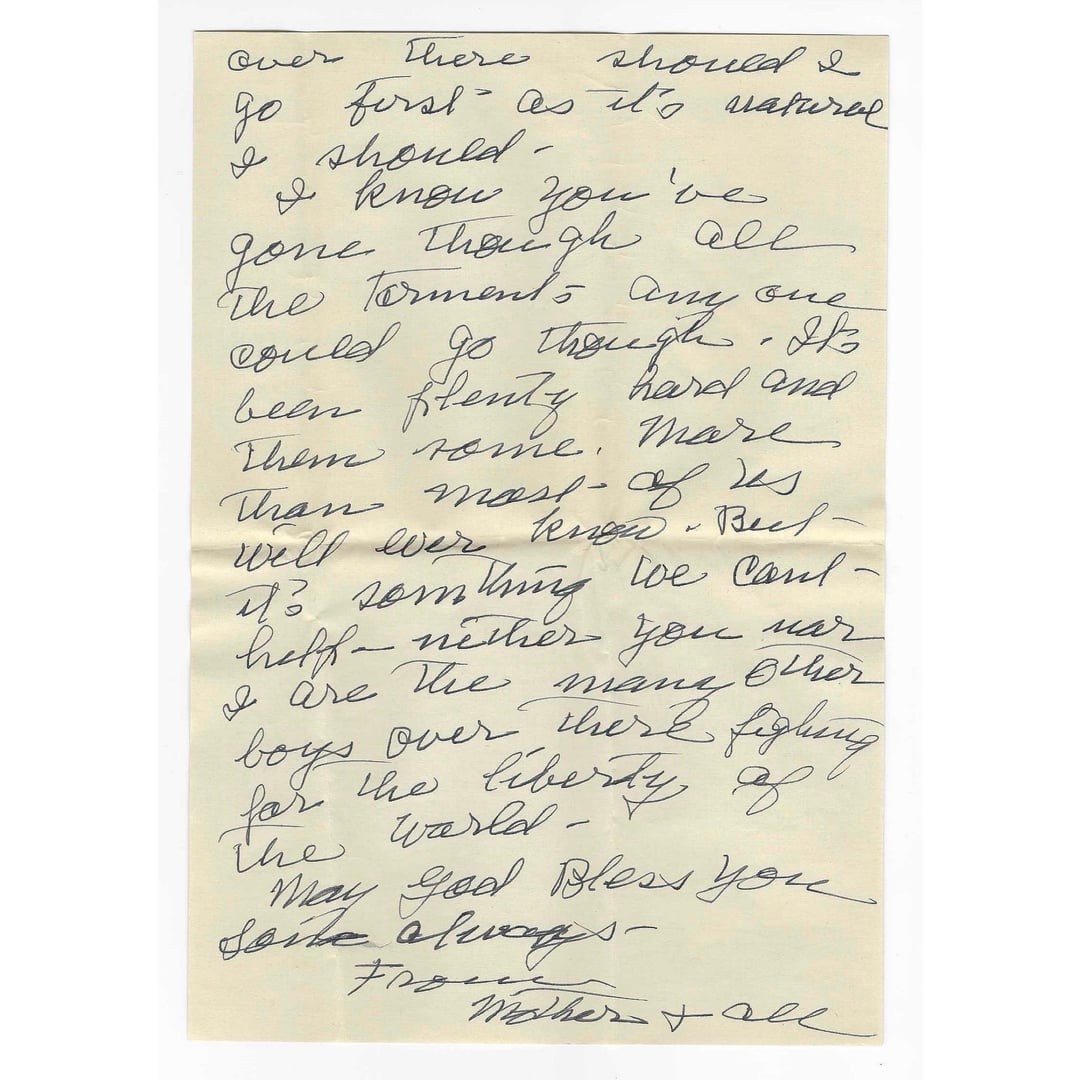 over there should I
go first - as it's natural
I should -
I know you've
gone though all
the torments any one
could go though. It's
been plenty hard and
them some. More
than most - of us
will ever know. But -
it's somthing we cant -
help - nither you nor
I are the many other
boys over there fighting
for the liberty of
the world -
May God Bless you
son always -
From
Mother & all